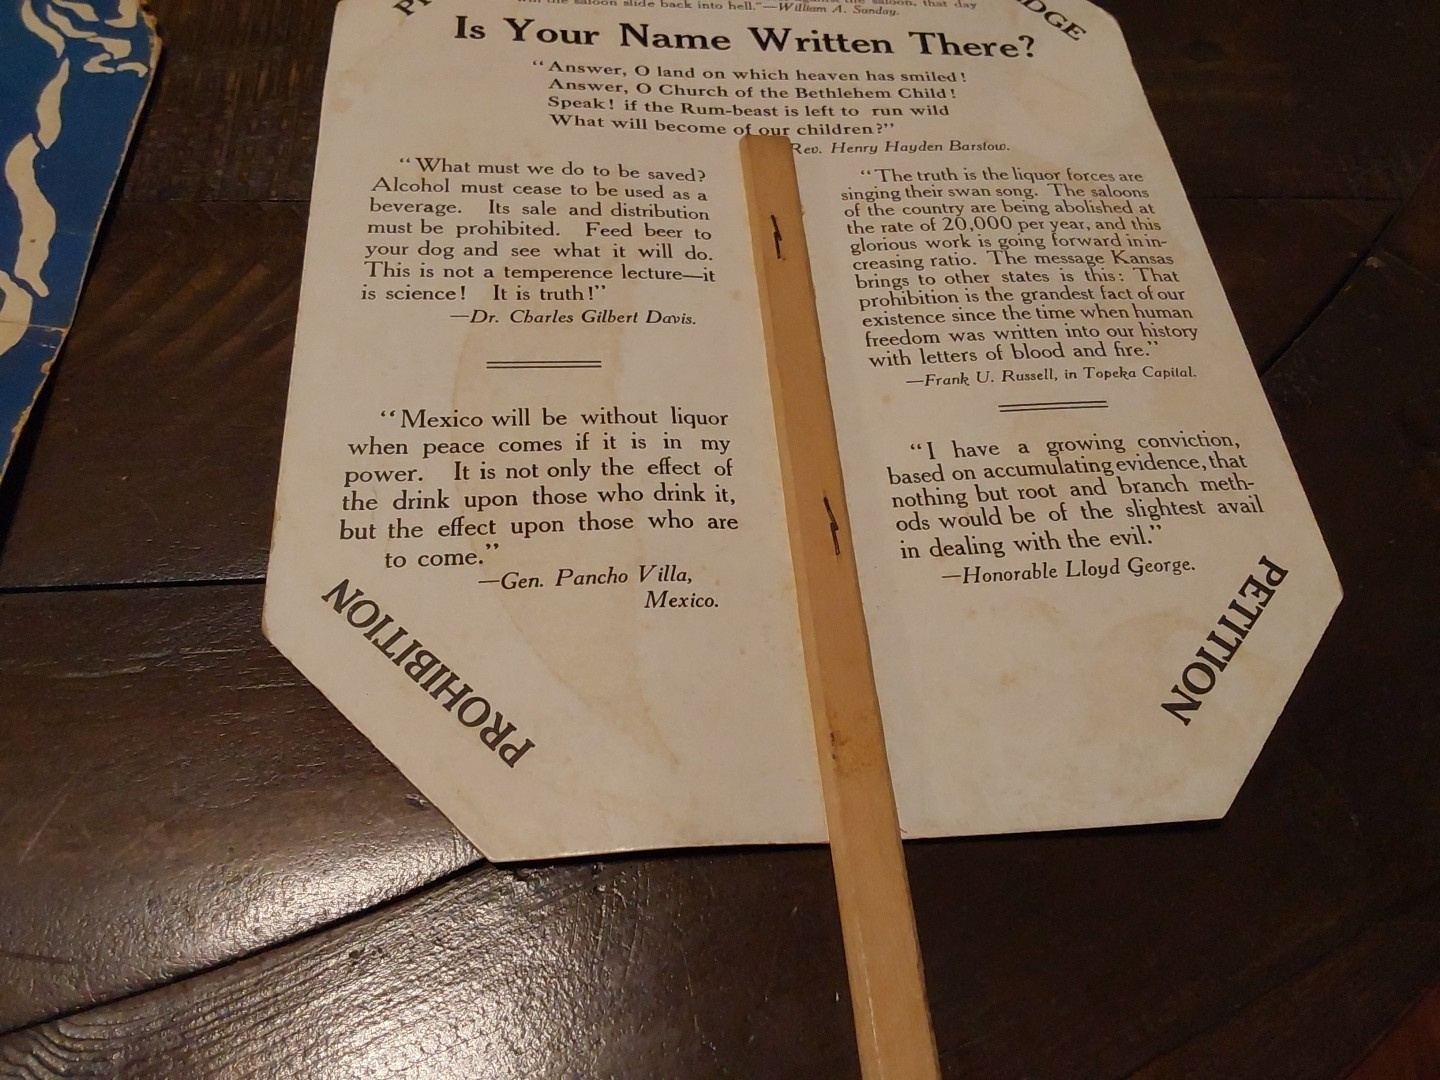 the saloon slide back into hell."—William A. Sunday.
Is Your Name Written There?
"Answer, O land on which heaven has smiled!
Answer, O Church of the Bethlehem Child!
Speak! if the Rum-beast is left to run wild
What will become of our children?"
Rev. Henry Hayden Barstow.
"What must we do to be saved?
Alcohol must cease to be used as a
beverage. Its sale and distribution
must be prohibited. Feed beer to
your dog and see what it will do.
This is not a temperence lecture—it
is science! It is truth!"
—Dr. Charles Gilbert Davis.
"Mexico will be without liquor
when peace comes if it is in my
power. It is not only the effect of
the drink upon those who drink it,
but the effect upon those who are
to come."
—Gen. Pancho Villa,
Mexico.
"The truth is the liquor forces are
singing their swan song. The saloons
of the country are being abolished at
the rate of 20,000 per year, and this
glorious work is going forward in in-
creasing ratio. The message Kansas
brings to other states is this: That
prohibition is the grandest fact of our
existence since the time when human
freedom was written into our history
with letters of blood and fire."
—Frank U. Russell, in Topeka Capital.
"I have a growing conviction,
based on accumulating evidence, that
nothing but root and branch meth-
ods would be of the slightest avail
in dealing with the evil."
—Honorable Lloyd George.
PROHIBITION
PETITION